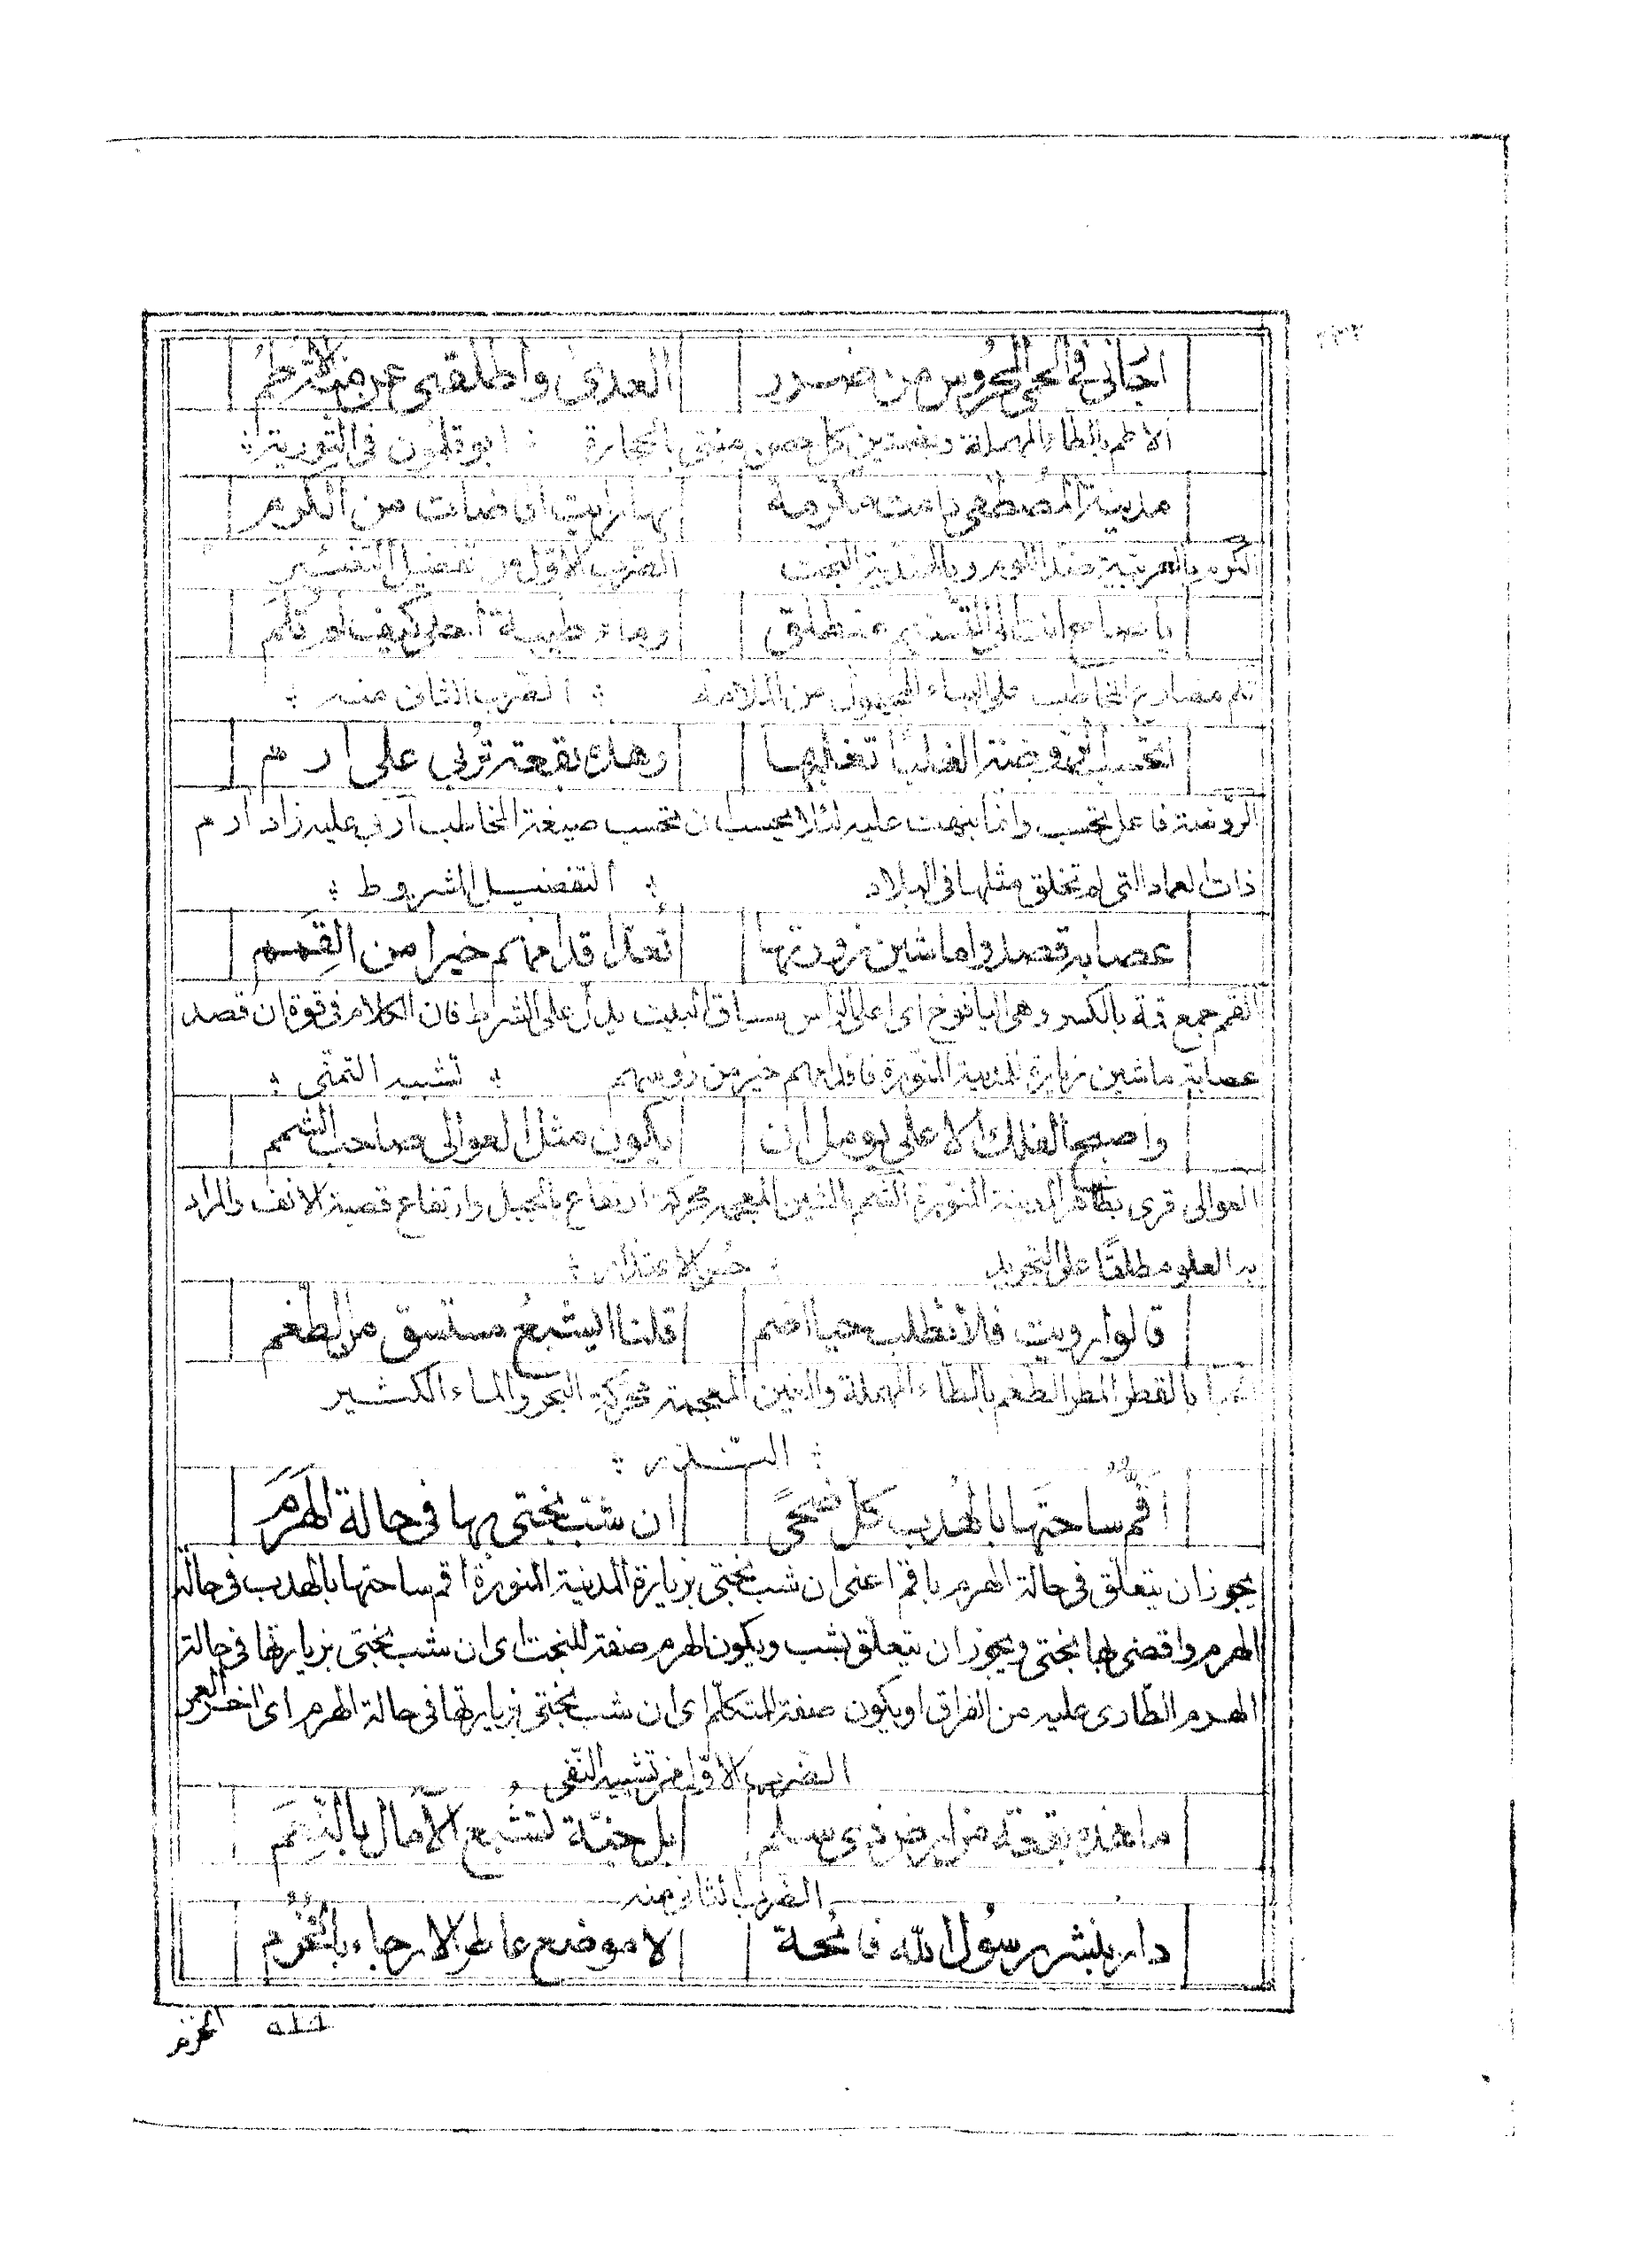 اجارني في الحمى المحروس من ضرر العدى واطلقني عن الاطم
الاطم بالطاء المهملة وبضمتين كل حصن مبنى بالحجارة ؞ ابو قلمون في التورية ؞
مدينة المصطفى دامت مكرمة بها رايت افاضات من الكرم
الكرم بالعربية ضد اللوم وبالهندية البخت الضرب الاول من تفضيل التفسير
يا صاح انت الى منطلق وماء طيبة احلى كيف لم تلم
تلم مضارع المخاطب على البناء المجهول من الملامة ؞ الضرب الثاني منه ؞
تحسب الروضة الغلبا تعليها وهذه بقعة تربي على ارم
الروضة فاعل تحسب وانما نبهت عليه لئلا يحسب ان تحسب صيغة المخاطب اربى عليه زاد ارم
ذات العماد التي لم يخلق مثلها في البلاد ؞ التفضيل المشروط ؞
عصابة قصدوا ماشين زورتها تعد اقدامهم خيرا من القمم
القمم جمع قمة بالكسر وهى اليافوخ اى اعلى الراس سياق البيت يدل على الشرط فان الكلام في قوة ان قصد
عصابة ماشين زيارة المدينة المنورة فاقدامهم خير من رؤسهم ؞ تشبيه التمنى ؞
واصبح الفلك الاعلى يومل ان يكون مثل العوالى صاحب الشمم
العوالى قرى بظاهر المدينة المنورة الشمم بالشين المعجمة محركة ارتفاع الجبل وارتفاع قصبة الانف والمراد
به العلو مطلقا على التجريد ؞ حسن الاعتذار ؞
قالوا رويت فلا تطلب حيا اضم قلنا ايشبع مستسق من الطغم
الحيا بالقصر المطر الطغم بالطاء المهملة والغين المعجمة محركة البحر والماء الكثير
؞ النذر ؞
اقم ساحتها بالهدب كل ضحى ان شب بختى بها في حالة الهرم
يجوز ان يتعلق في حالة الهرم باقم اعنى ان شب بختى بزيارة المدينة المنورة اقم ساحتها بالهدب في حالة
الهرم واقضى بها بختى ويجوز ان يتعلق بشب ويكون الهرم صفة للبخت اى ان شب بختى بزيارتها في حالة
الهرم الطارى عليه من الفراق او يكون صفة المتكلم اى ان شب بختى بزيارتها في حالة الهرم اى اخر العمر
الضرب الاول من تشبيه النفى
ما هذه بقعة من ارض ذى سلم بل جنة تشبع الآمال بالنعم
الضرب الثاني منه
دار بنشر رسول الله فائحة لا موضع عاطر الارجاء بالخزم
الخزم